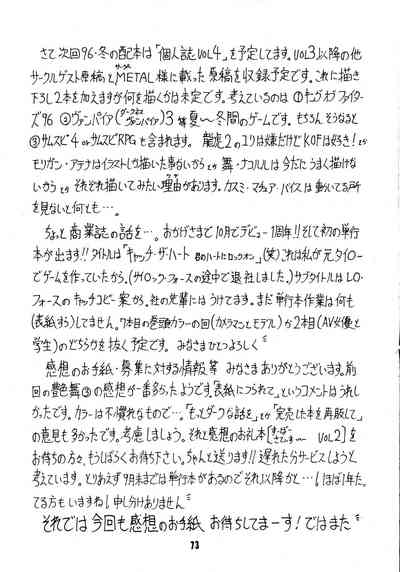 さて次回96・冬の配本は「個人誌VOL4」を予定してます。VOL3以降の他
サークルゲスト原稿とMETAL様に載った原稿を収録予定です。これに描き
下ろし2本を加えますが何を描くかは未定です。考えているのは①キングオブファイター
で96 ②ヴァンパイア 3 等夏〜冬間のゲームです。もちろんそうなると
③サムスピ4 or サムスピRPGも含まれます。龍虎2のユリは嫌だけどKOFは好き!とか
モリガン・アテナはイラストしか描いた事ないからとか舞・ナコルルは今だにうまく描けな
いからとかそれぞれ描いてみたい理由があります。カスミ・マチュア・バイスは動いてる所
を見ないと何とも…。
ちょっと商業誌の話を…。おかげさまで10月でデビュー1周年!!そして初の単行
本が出ます!!タイトルは「キャッチ・ザ・ハート 君のハートにロックオン」(笑)これは私が元タイトー
でゲームを作っていたから。(サイロック・フォースの途中で退社しました。)サブタイトルはLO.
フォースのキャッチコピー案から。社の先輩にはうけてます。まだ単行本作業は何も
(表紙すら)してません。7本目の巻頭カラーの回(カメラマンとモデル)か2本目(AV女優と
学生)のどちらかを抜く予定です。みなさまひとつよろしく
感想のお手紙・募集に対する情報等みなさまありがとうございます。前
回の艶舞③の感想が一番多かったようです。「表紙につられて」というコメントはうれし
かったです。カラーは不慣れなもので…。「もっとダークな話を」とか「完売した本を再販して」
の意見も多かったです。考慮しましょう。それと感想のお礼本[ VOL2]を
お待ちの方々、もうしばらくお待ち下さい。ちゃんと送ります!!遅れたらサービスしようと
考えています。とりあえず9月末までは単行本があるのでそれ以降かと…!ほぼ1年た。
てる方もいますね!申し分けありません
それでは今回も感想のお手紙 お待ちしてまーす!ではまた
73